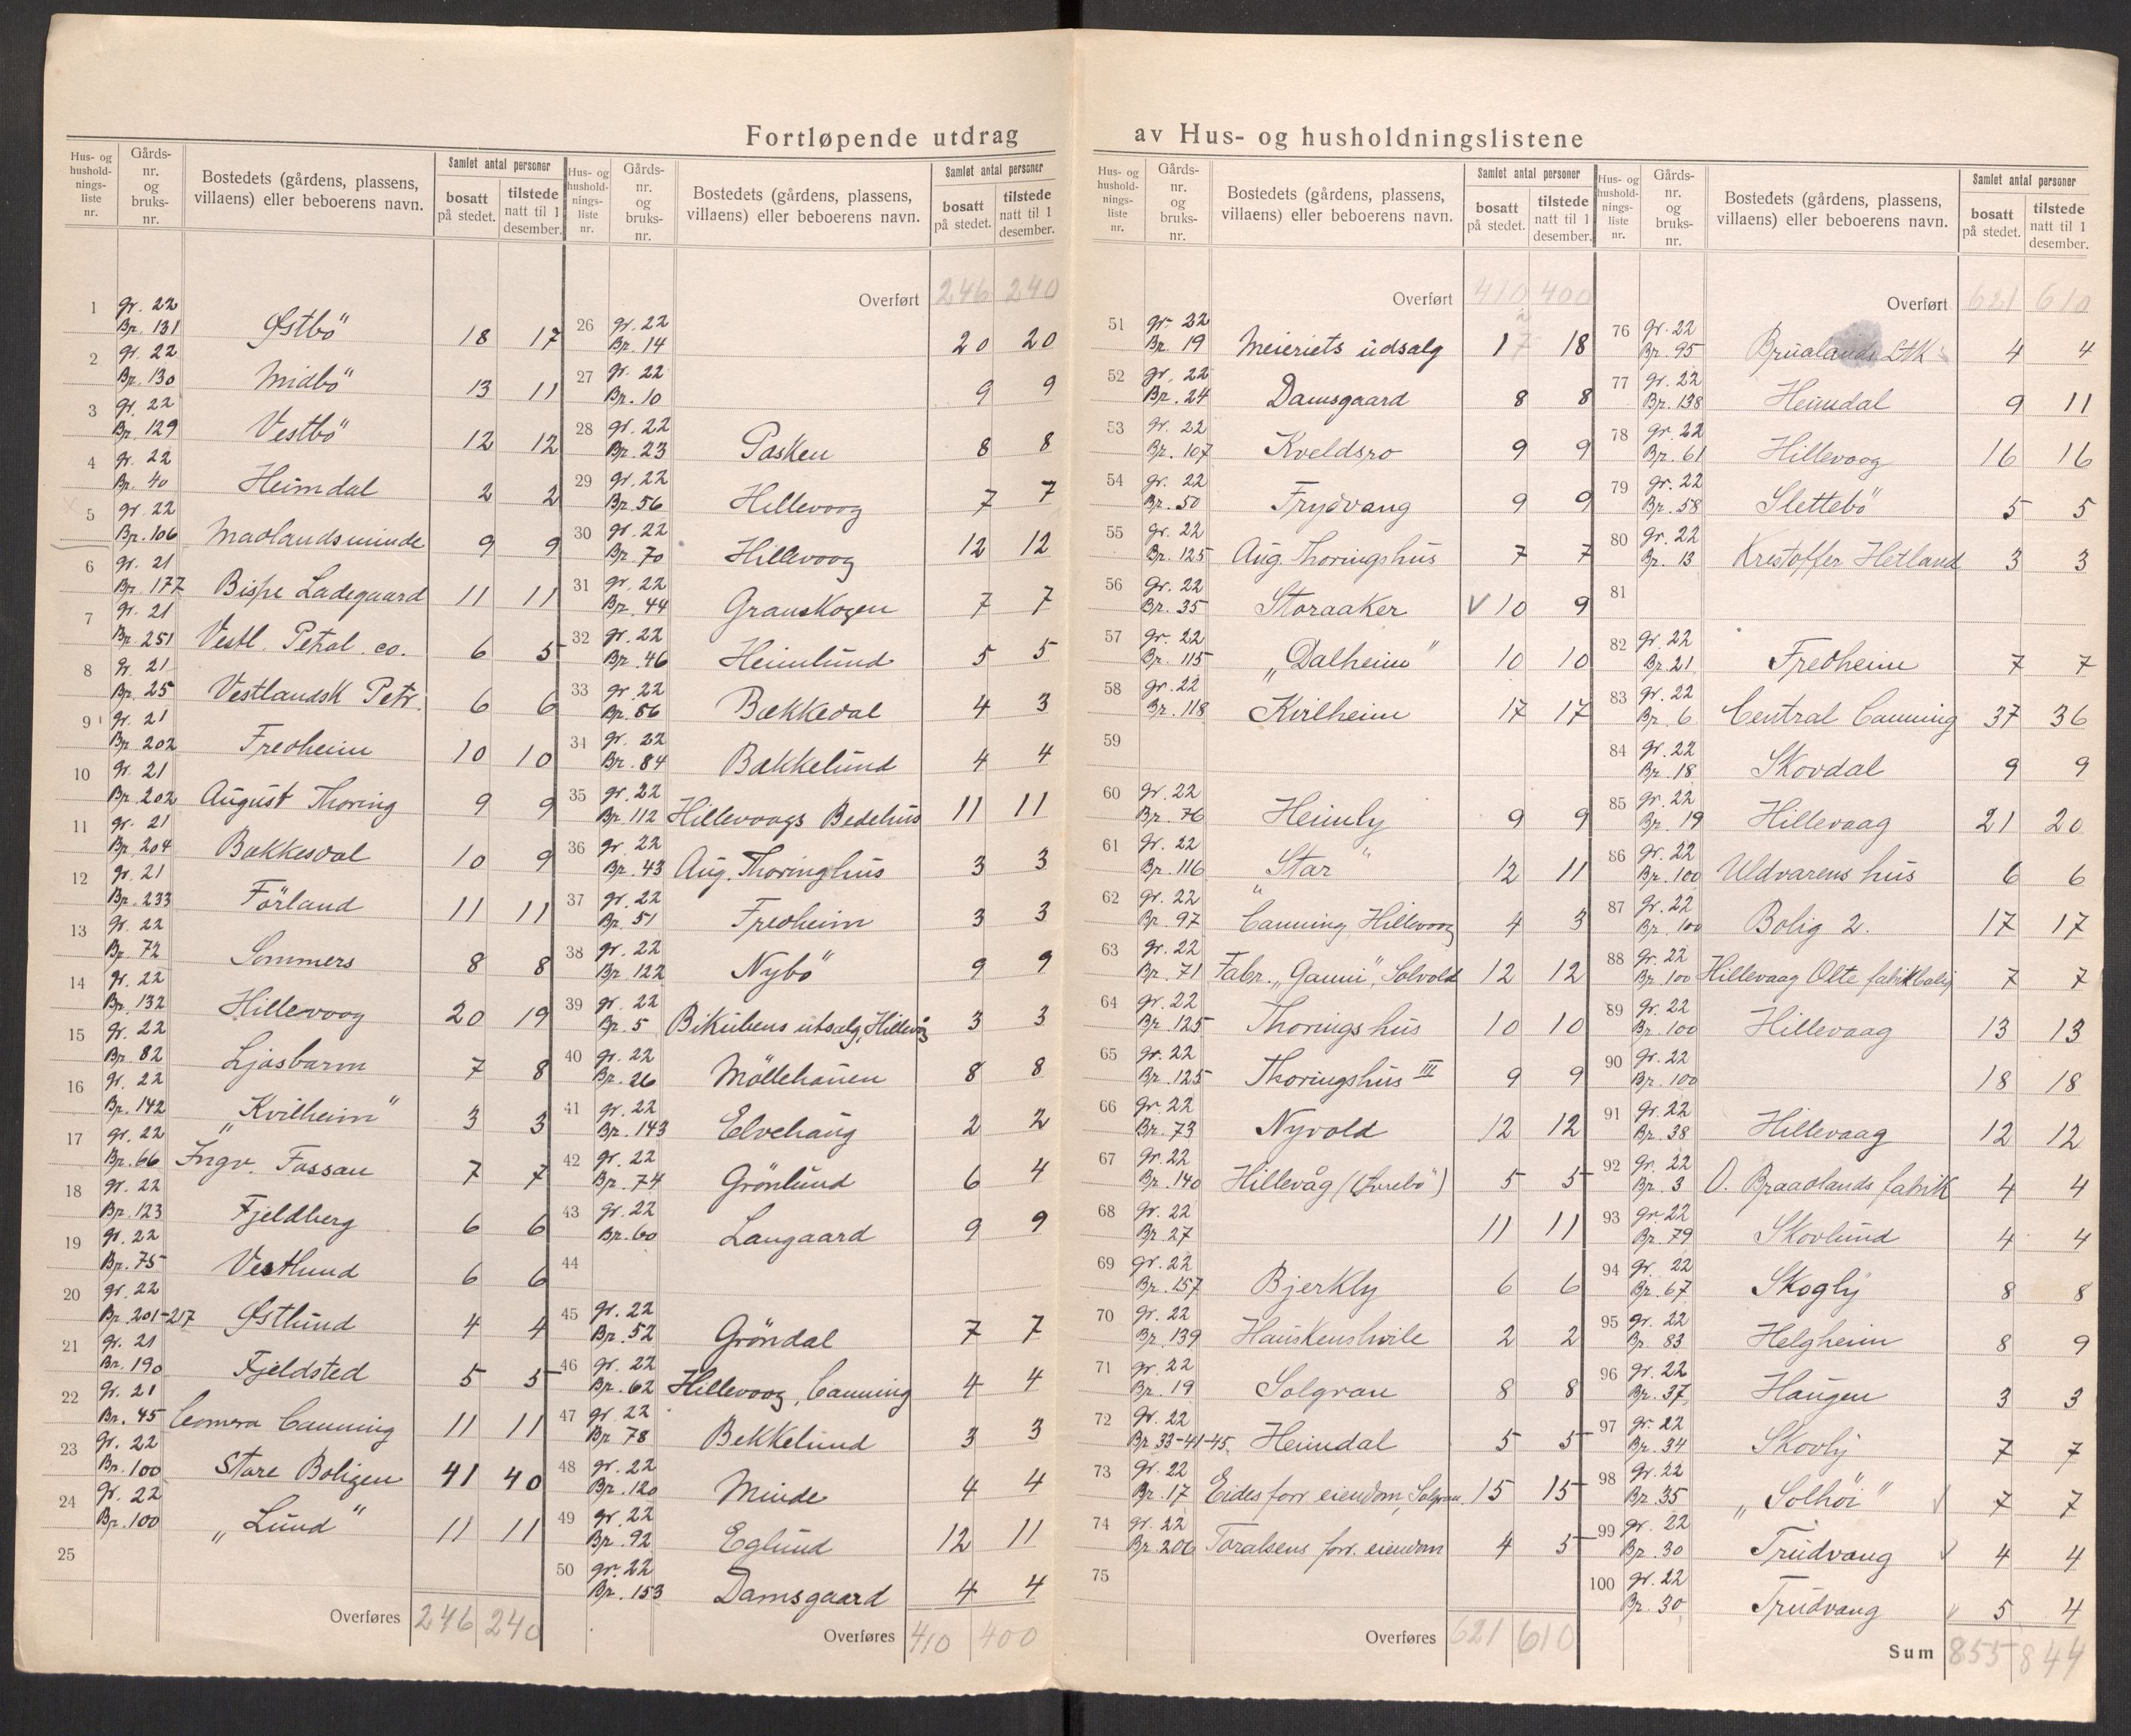 Fortløpende utdrag av Hus- og husholdningslistene
Hus- og husholdnings- liste nr. | Gårds- nr. og bruks- nr. | Bostedets (gårdens, plassens, villaens) eller beboerens navn. | Samlet antal personer bosatt på stedet. | tilstede natt til 1 desember.
1 Gr. 22 Br. 131 Østbö 18 17
2 Gr. 22 Br. 130 Midbö 13 11
3 Gr. 22 Br. 129 Vestbö 12 12
4 Gr. 22 Br. 40 Heimdal 2 2
5 Gr. 22 Br. 106 Madlandsminde 9 9
6 Gr. 21 Br. 177 Bispe Ladegaard 11 11
7 Gr. 21 Br. 251 Vestl. Petrol. co. 6 5
8 Gr. 21 Br. 25 Vestlandsk Petr. 6 6
9 Gr. 21 Br. 202 Fredheim 10 10
10 Gr. 21 Br. 202 August Thoring 9 9
11 Gr. 21 Br. 204 Bakkesdal 10 9
12 Gr. 21 Br. 233 Förland 11 11
13 Gr. 22 Br. 72 Sommers 8 8
14 Gr. 22 Br. 132 Hillevaag 20 19
15 Gr. 22 Br. 82 Ljosbarm 7 8
16 Gr. 22 Br. 142 „Kvilheim" 3 3
17 Gr. 22 Br. 66 Ingv. Fossan 7 7
18 Gr. 22 Br. 123 Fjeldberg 6 6
19 Gr. 22 Br. 75 Vestlund 6 6
20 Gr. 22 Br. 201-217 Østlund 4 4
21 Gr. 21 Br. 190 Fjeldsted 5 5
22 Gr. 21 Br. 45 Canning 11 11
23 Gr. 22 Br. 100 Store Boligen 41 40
24 Gr. 22 Br. 100 „Lund" 11 11
25
Overføres 246 240
Hus- og husholdnings- liste nr. | Gårds- nr. og bruks- nr. | Bostedets (gårdens, plassens, villaens) eller beboerens navn. | Samlet antal personer bosatt på stedet. | tilstede natt til 1 desember.
Overført 246 240
26 Gr. 22 Br. 14 20 20
27 Gr. 22 Br. 10 9 9
28 Gr. 22 Br. 23 Parken 8 8
29 Gr. 22 Br. 56 Hillevaag 7 7
30 Gr. 22 Br. 70 Hillevaag 12 12
31 Gr. 22 Br. 44 Granskogen 7 7
32 Gr. 22 Br. 46 Heimlund 5 5
33 Gr. 22 Br. 86 Bækkedal 4 3
34 Gr. 22 Br. 84 Bakkelund 4 4
35 Gr. 22 Br. 112 Hillevaags Bedehus 11 11
36 Gr. 22 Br. 43 Aug. Thoringhus 3 3
37 Gr. 22 Br. 51 Fredheim 3 3
38 Gr. 22 Br. 122 Nybö 9 9
39 Gr. 22 Br. 5 Bikubens utsalg, Hillevåg 3 3
40 Gr. 22 Br. 26 Möllehauen 8 8
41 Gr. 22 Br. 143 Elvehaug 2 2
42 Gr. 22 Br. 74 Grönlund 6 4
43 Gr. 22 Br. 60 Langaard 9 9
44
45 Gr. 22 Br. 52 Gröndal 7 7
46 Gr. 22 Br. 62 Hillevaag, Canning 4 4
47 Gr. 22 Br. 78 Bekkelund 3 3
48 Gr. 22 Br. 120 Minde 4 4
49 Gr. 22 Br. 92 Eglund 12 11
50 Gr. 22 Br. 153 Damsgaard 4 4
Overføres 410 400
Hus- og hushold- nings- liste nr. | Gårds- nr. og bruks- nr. | Bostedets (gårdens, plassens, villaens) eller beboerens navn. | Samlet antal personer bosatt på stedet. | tilstede natt til 1 desember.
Overført 410 400
51 Gr. 22 Br. 19 Meieriets udsalg 17 18
52 Gr. 22 Br. 24 Damsgaard 8 8
53 Gr. 22 Br. 107 Kveldsro 9 9
54 Gr. 22 Br. 50 Frydvang 9 9
55 Gr. 22 Br. 125 Aug. Thoringshus 7 7
56 Gr. 22 Br. 35 Storaaker V 10 9
57 Gr. 22 Br. 115 „Dalheim" 10 10
58 Gr. 22 Br. 118 Kvilheim 17 17
59
60 Gr. 22 Br. 76 Heimly 9 9
61 Gr. 22 Br. 116 „Star" 12 11
62 Gr. 22 Br. 97 Canning Hillevaag 4 3
63 Gr. 22 Br. 71 Fabr. „Ganni", Solvold 12 12
64 Gr. 22 Br. 125 Thorings hus 10 10
65 Gr. 22 Br. 125 Thoringshus III 9 9
66 Gr. 22 Br. 73 Nyvold 12 12
67 Gr. 22 Br. 140 Hillevåg 5 5
68 Gr. 22 Br. 27 11 11
69 Gr. 22 Br. 157 Bjerkly 6 6
70 Gr. 22 Br. 139 Hauskenshvile 2 2
71 Gr. 22 Br. 19 Solgran 8 8
72 Gr. 22 Br. 33-41-45 Heimdal 5 5
73 Gr. 22 Br. 17 Eides forr. eiendom, Solgran 15 15
74 Gr. 22 Br. 206 Toralsens forr. eiendom 4 5
75
Overføres 621 610
Hus- og hushold- nings- liste nr. | Gårds- nr. og bruks- nr. | Bostedets (gårdens, plassens, villaens) eller beboerens navn. | Samlet antal personer bosatt på stedet. | tilstede natt til 1 desember.
Overført 621 610
76 Gr. 22 Br. 95 Brualands 4 4
77 Gr. 22 Br. 138 Heimdal 9 11
78 Gr. 22 Br. 61 Hillevaag 16 16
79 Gr. 22 Br. 58 Slettebö 5 5
80 Gr. 22 Br. 13 Krestoffer Hetland 3 3
81
82 Gr. 22 Br. 21 Fredheim 7 7
83 Gr. 22 Br. 6 Central Canning 37 36
84 Gr. 22 Br. 18 Skovdal 9 9
85 Gr. 22 Br. 19 Hillevaag 21 20
86 Gr. 22 Br. 100 Uldvarens hus 6 6
87 Gr. 22 Br. 100 Bolig 2. 17 17
88 Gr. 22 Br. 100 Hillevaag Olte fabrikbolig 7 7
89 Gr. 22 Br. 100 Hillevaag 13 13
90 Gr. 22 Br. 100 18 18
91 Gr. 22 Br. 38 Hillevaag 12 12
92 Gr. 22 Br. 3 O. Braadlands fabrik 4 4
93 Gr. 22 Br. 79 Skovlund 4 4
94 Gr. 22 Br. 67 Skogly 8 8
95 Gr. 22 Br. 83 Helgheim 8 9
96 Gr. 22 Br. 37 Haugen 3 3
97 Gr. 22 Br. 34 Skovly 7 7
98 Gr. 22 Br. 35 „Solhöi" V 7 7
99 Gr. 22 Br. 30 Trudvang V 4 4
100 Gr. 22 Br. 30 Trudvang V 5 4
Sum 855 844